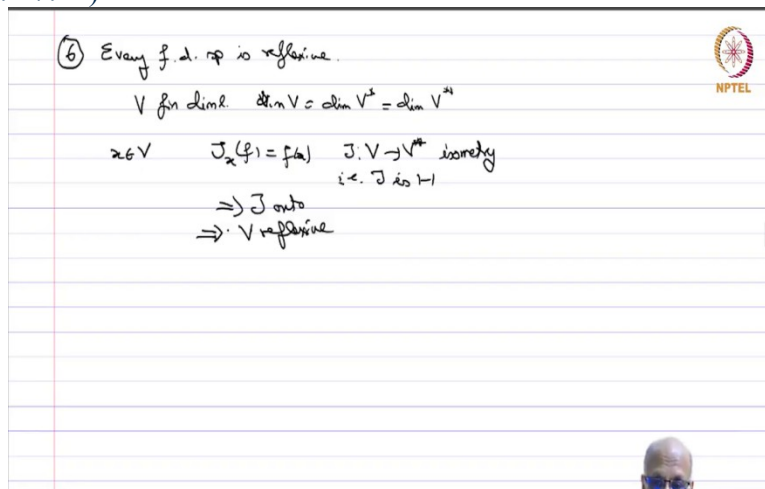 ⑥ Every f.d. sp is reflexive.
NPTEL
V fin diml. dim V = dim V* = dim V**
x∈V J_x(f) = f(x) J: V → V** isometry
i.e. J is 1-1
⇒ J onto
⇒ V reflexive